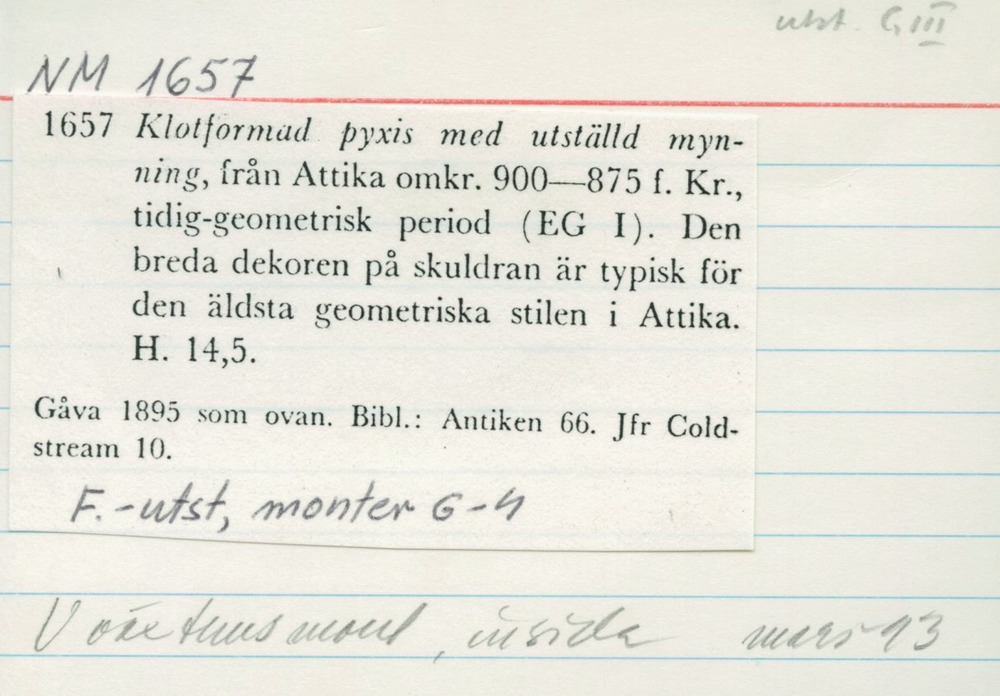 utst. G III
NM 1657
1657 Klotformad pyxis med utställd myn-
ning, från Attika omkr. 900—875 f. Kr.,
tidig-geometrisk period (EG I). Den
breda dekoren på skuldran är typisk för
den äldsta geometriska stilen i Attika.
H. 14,5.
Gåva 1895 som ovan. Bibl.: Antiken 66. Jfr Cold-
stream 10.
F.-utst, monter G-4
insida mars 93